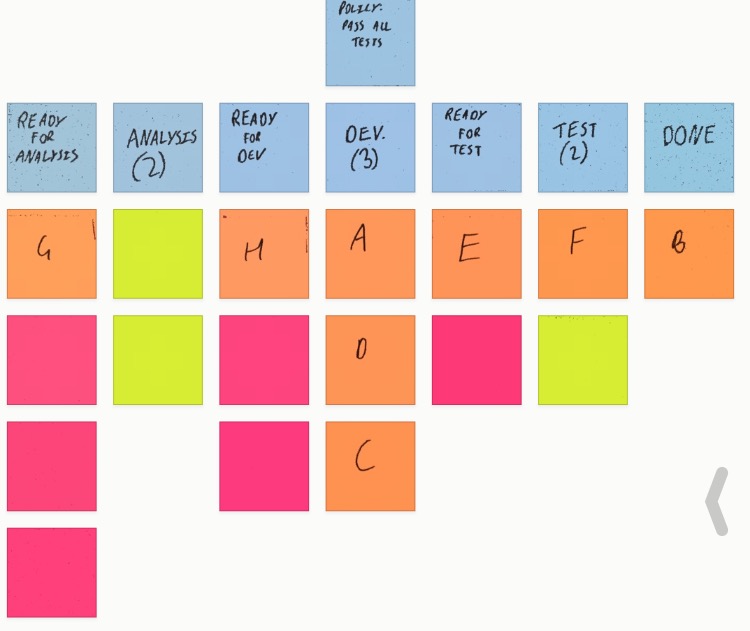 POLICY:
PASS ALL
TESTS
READY
FOR
ANALYSIS
ANALYSIS
(2)
READY
FOR
DEV
DEV.
(3)
READY
FOR
TEST
TEST
(2)
DONE
G
H
A
E
F
B
D
C